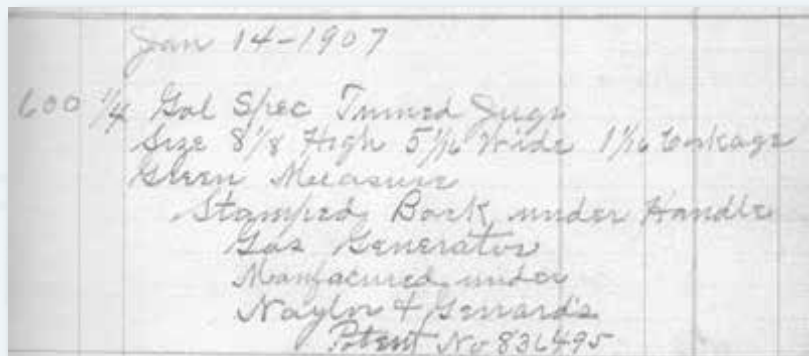 Jan 14-1907
600 1/4 Gal Spec Turned Jugs
Size 8 1/8 High 5 1/16 Wide 1 1/16 Corkage
Green Measure
Stamped Back under Handle
Gas Generator
Manfacured under
Naylor & Gerrard's
Patent No 836495